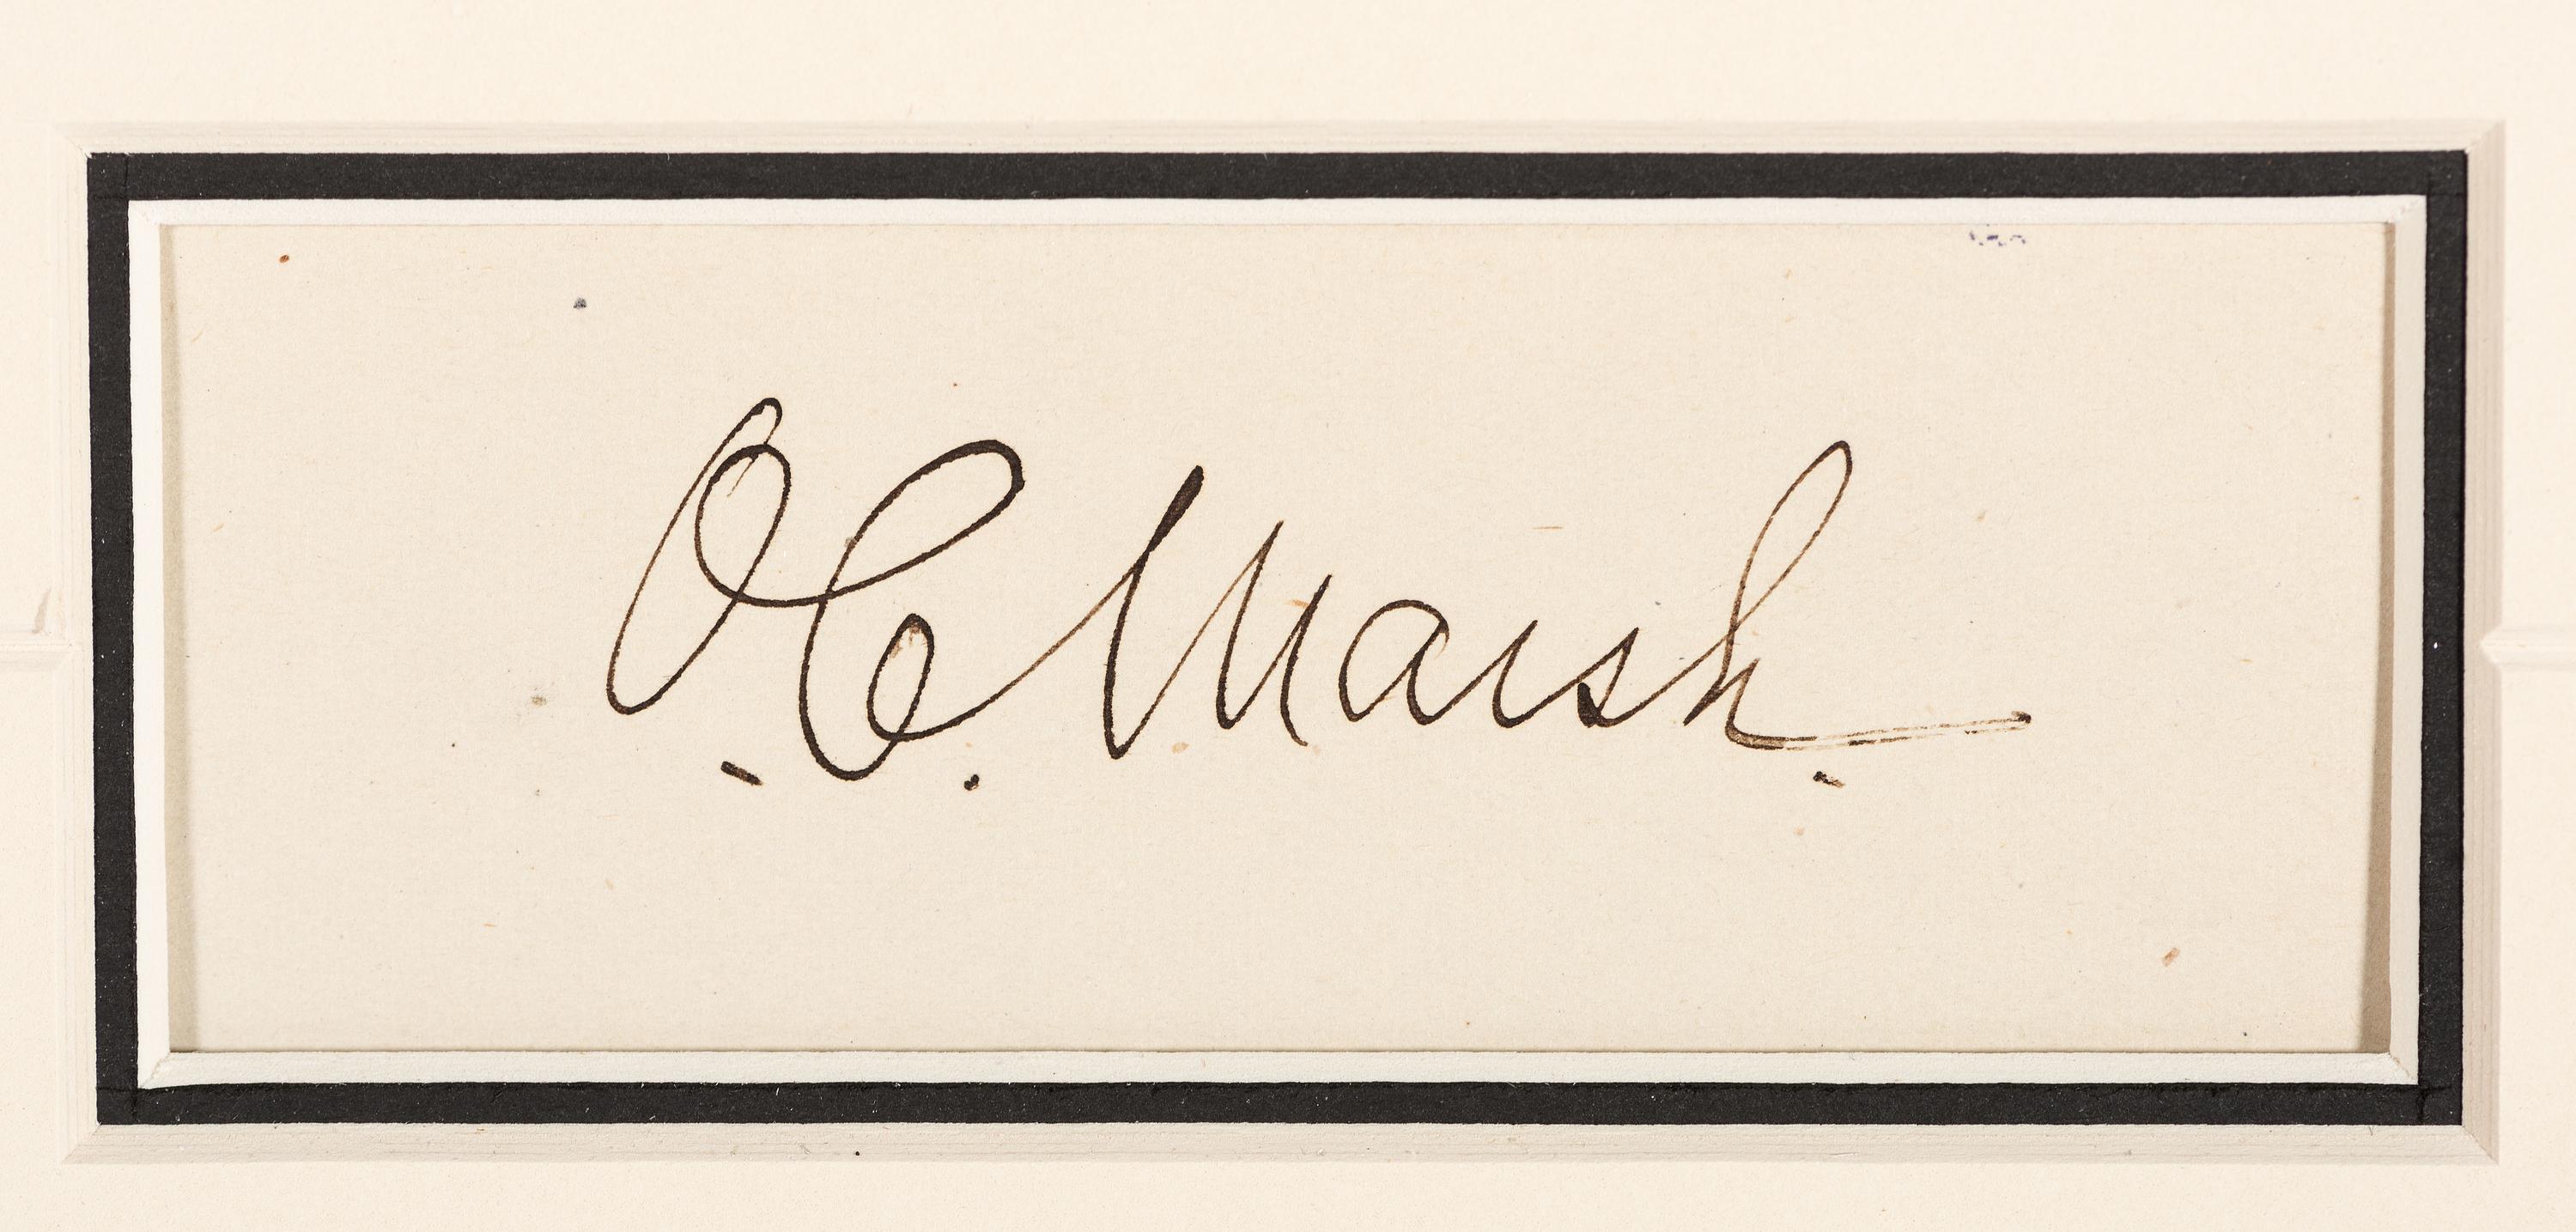 O. C. Marsh.